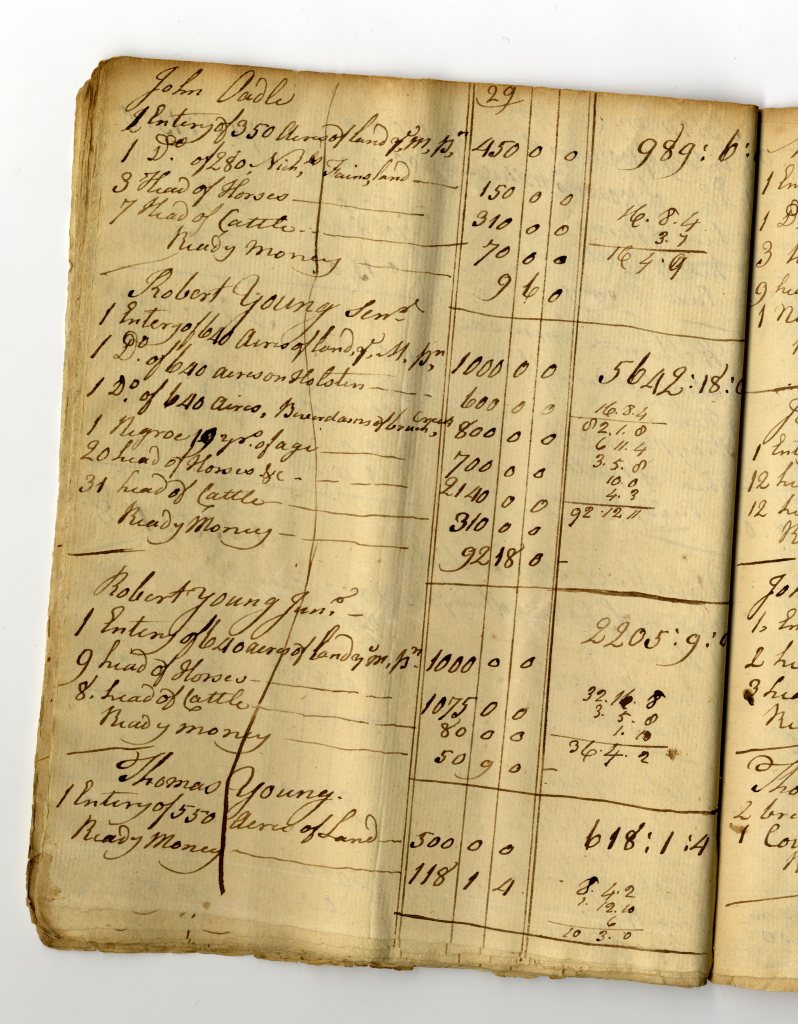 29
John Oadle
1 Entery of 350 Acres of land pr. M, pn 450 0 0 989: 6:
1 Do. of 280, Nich, Fains, land 150 0 0
3 Head of Horses 310 0 0 16. 8. 4
7 Head of Cattle 70 0 0 3. 7
Ready Money 9 6 0 16 4. 9
Robert Young Senr.
1 Entery of 640 Acres of land, M, pn 1000 0 0 5642:18:
1 Do. of 640 acres on Holsten 600 0 0 16. 8. 4
1 Do. of 640 Acres, Beverdams of Creek, 800 0 0 82. 1. 8
1 Negroe 19 yrs. of age 700 0 0 6 11. 4
20 head of Horses &c 2140 0 0 3. 5. 8
31 head of Cattle 310 0 0 10. 0
Ready Money 92 18 0 4. 3
92. 12. 11
Robert Young Junr.
1 Entery of 640 acres of land M, pn 1000 0 0 2205:9:
9 head of Horses 1075 0 0 32. 16. 8
8. head of Cattle 80 0 0 3. 5. 8
Ready money 50 9 0 1. 10
36. 4. 2
Thomas Young.
1 Entery of 550 Acres of Land 500 0 0 618:1:4
Ready Money 118 1 4 8. 4. 2
1. 12. 10
6
10 3. 0
1 En
1 D
3
9 he
1 N
1 Ent
12 he
12 he
R
Joh
1, En
2 he
3 hea
Re
Tho
2 bra
1 Cov